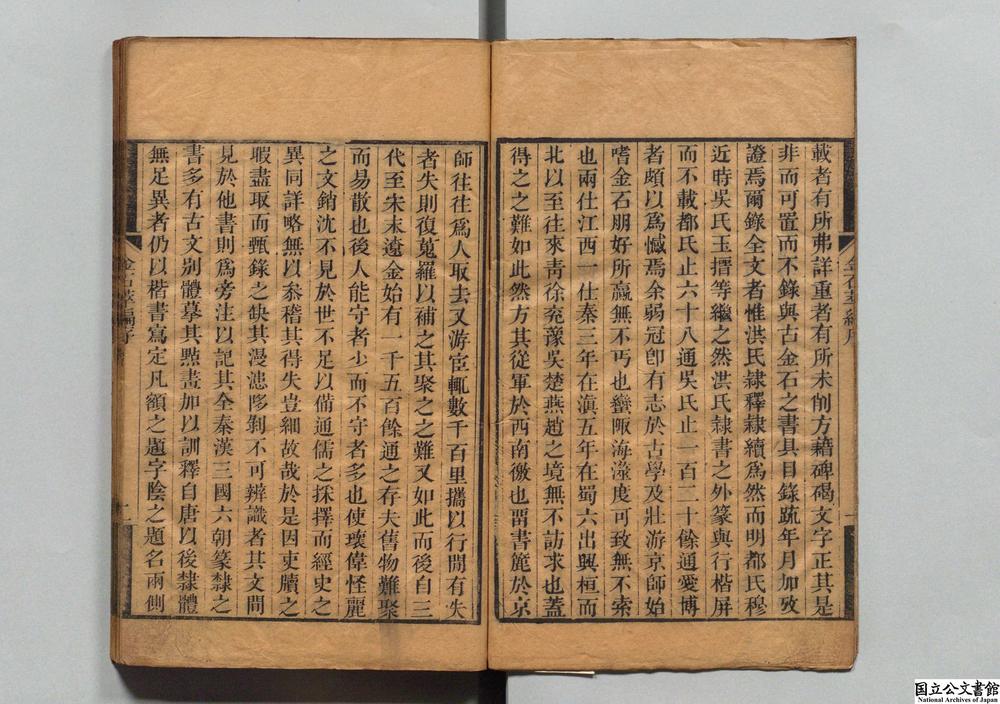 載者有所弗詳重者有所未削方藉碑碣文字正其是
非而可置而不錄與古金石之書具目錄䟽年月加攷
證焉爾錄全文者惟洪氏隸釋隸續爲然而明都氏穆
近時吳氏玉搢等繼之然洪氏隸書之外篆與行楷屏
而不載都氏止六十八通吳氏止一百二十餘通愛博
者頗以爲憾焉余弱冠卽有志於古學及壯游京師始
嗜金石朋好所贏無不丐也蠻陬海澨度可致無不索
也兩仕江西一仕秦三年在滇五年在蜀六出興桓而
北以至往來靑徐兖豫吳楚燕趙之境無不訪求也蓋
得之之難如此然方其從軍於西南徼也畱書簏於京
金石萃編序
一
師往往爲人取去又游宦輒數千百里攜以行閒有失
者失則復蒐羅以補之其聚之之難又如此而後自三
代至宋末遼金始有一千五百餘通之存夫舊物難聚
而易散也後人能守者少而不守者多也使瓌偉怪麗
之文銷沈不見於世不足以備通儒之採擇而經史之
異同詳略無以叅稽其得失豈細故哉於是因吏牘之
暇盡取而甄錄之缺其漫漶陊剝不可辨識者其文間
見於他書則爲旁注以記其全秦漢三國六朝篆隸之
書多有古文别體摹其㸃畫加以訓釋自唐以後隸體
無足異者仍以楷書寫定凡額之題字陰之題名兩側
金石萃編序
二
国立公文書館
National Archives of Japan